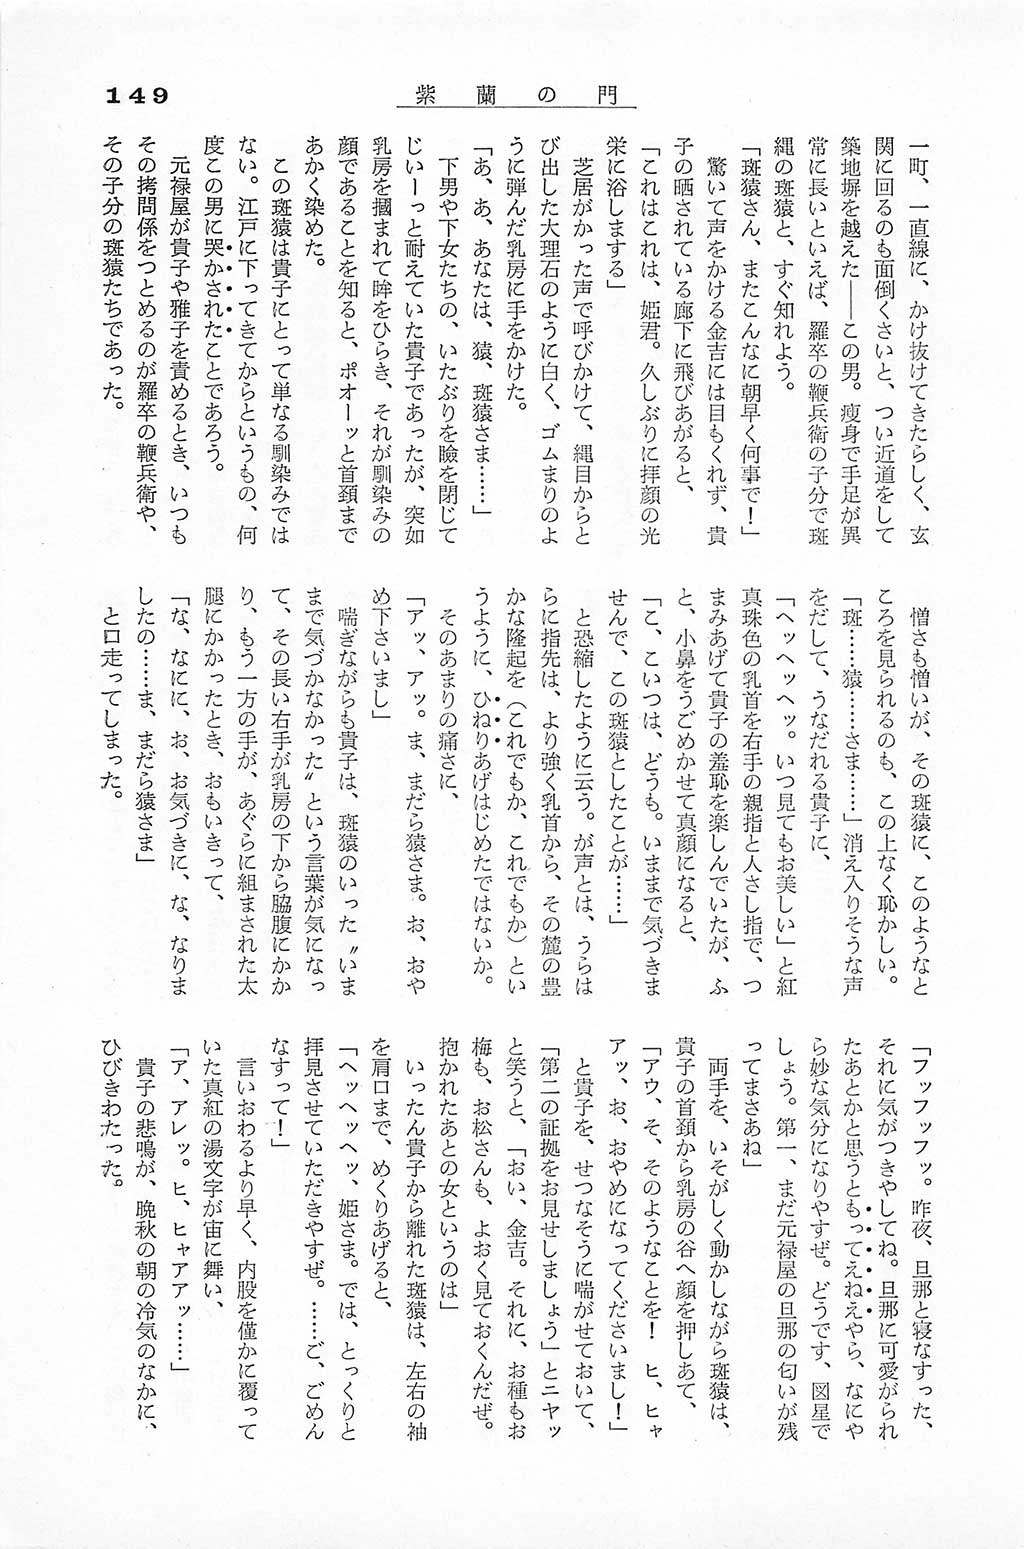 149
紫蘭の門
一町、一直線に、かけ抜けてきたらしく、玄
関に回るのも面倒くさいと、つい近道をして
築地塀を越えた――この男。瘦身で手足が異
常に長いといえば、羅卒の鞭兵衛の子分で斑
縄の斑猿と、すぐ知れよう。
「斑猿さん、またこんなに朝早く何事で！」
驚いて声をかける金吉には目もくれず、貴
子の晒されている廊下に飛びあがると、
「これはこれは、姫君。久しぶりに拝顔の光
栄に浴しまする」
芝居がかった声で呼びかけて、縄目からと
び出した大理石のように白く、ゴムまりのよ
うに弾んだ乳房に手をかけた。
「あ、あ、あなたは、猿、斑猿さま……」
下男や下女たちの、いたぶりを瞼を閉じて
じいーっと耐えていた貴子であったが、突如
乳房を摑まれて眸をひらき、それが馴染みの
顔であることを知ると、ポオーッと首頚まで
あかく染めた。
この斑猿は貴子にとって単なる馴染みでは
ない。江戸に下ってきてからというもの、何
度この男に哭かされたことであろう。
元禄屋が貴子や雅子を責めるとき、いつも
その拷問係をつとめるのが羅卒の鞭兵衛や、
その子分の斑猿たちであった。
憎さも憎いが、その斑猿に、このようなと
ころを見られるのも、この上なく恥かしい。
「斑……猿……さま……」消え入りそうな声
をだして、うなだれる貴子に、
「ヘッヘッヘッ。いつ見てもお美しい」と紅
真珠色の乳首を右手の親指と人さし指で、つ
まみあげて貴子の羞恥を楽しんでいたが、ふ
と、小鼻をうごめかせて真顔になると、
「こ、こいつは、どうも。いままで気づきま
せんで、この斑猿としたことが……」
と恐縮したように云う。が声とは、うらは
らに指先は、より強く乳首から、その麓の豊
かな隆起を（これでもか、これでもか）とい
うように、ひねりあげはじめたではないか。
そのあまりの痛さに、
「アッ、アッ。ま、まだら猿さま。お、おや
め下さいまし」
喘ぎながらも貴子は、斑猿のいった〝いま
まで気づかなかった〟という言葉が気になっ
て、その長い右手が乳房の下から脇腹にかか
り、もう一方の手が、あぐらに組まされた太
腿にかかったとき、おもいきって、
「な、なにに、お、お気づきに、な、なりま
したの……ま、まだら猿さま」
と口走ってしまった。
「フッフッフッ。昨夜、旦那と寝なすった、
それに気がつきやしてね。旦那に可愛がられ
たあとかと思うともってえねえやら、なにや
ら妙な気分になりやすぜ。どうです、図星で
しょう。第一、まだ元禄屋の旦那の匂いが残
ってまさあね」
両手を、いそがしく動かしながら斑猿は、
貴子の首頚から乳房の谷へ顔を押しあて、
「アウ、そ、そのようなことを！　ヒ、ヒャ
アッ、お、おやめになってくださいまし！」
と貴子を、せつなそうに喘がせておいて、
「第二の証拠をお見せしましょう」とニヤッ
と笑うと、「おい、金吉。それに、お種もお
梅も、お松さんも、よおく見ておくんだぜ。
抱かれたあとの女というのは」
いったん貴子から離れた斑猿は、左右の袖
を肩口まで、めくりあげると、
「ヘッヘッヘッ、姫さま。では、とっくりと
拝見させていただきやすぜ。……ご、ごめん
なすって！」
言いおわるより早く、内股を僅かに覆って
いた真紅の湯文字が宙に舞い、
「ア、アレッ。ヒ、ヒャアアッ……」
貴子の悲鳴が、晩秋の朝の冷気のなかに、
ひびきわたった。